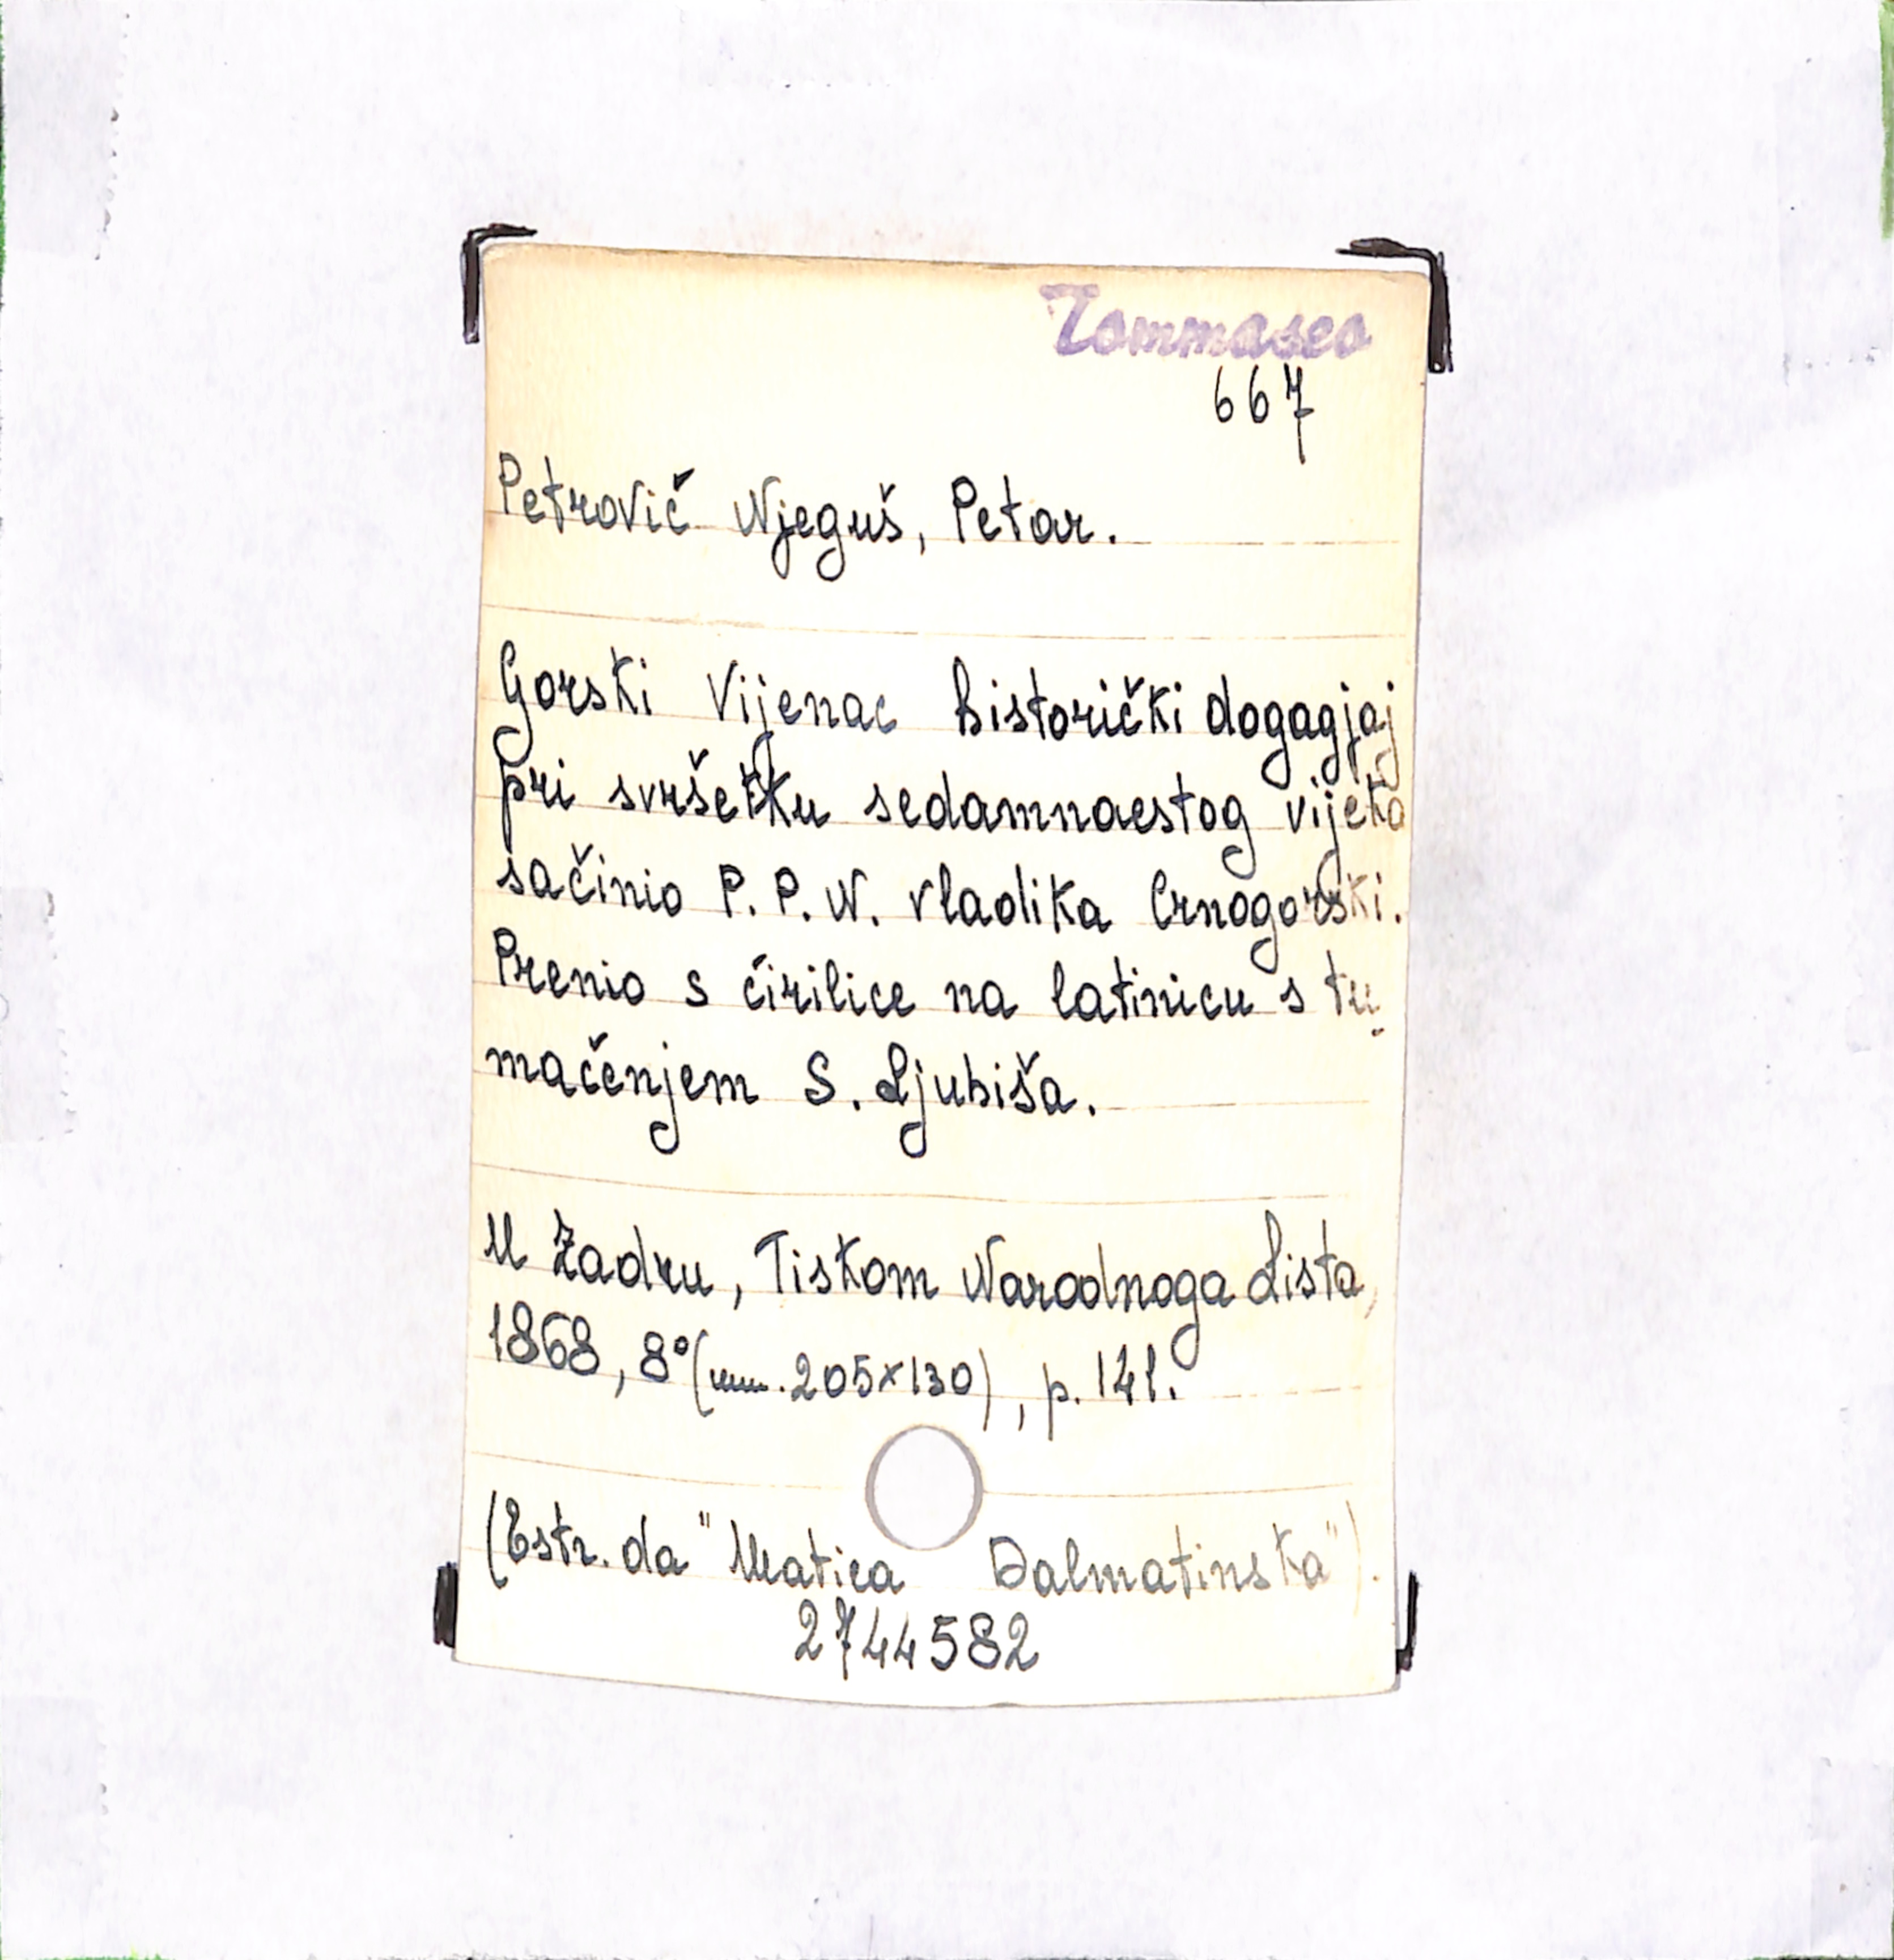 Tommaseo
667
Petrovič Njeguš, Petar.
Gorski Vijenac historički dogagjaj
pri svršetku sedamnaestog vijeka
sačinio P. P. N. vladika Crnogorski.
Prenio s ćirilice na latinicu s tu-
mačenjem S. Ljubiša.
U Zadru, Tiskom Narodnoga Lista,
1868, 8° (mm. 205×130), p. 141.
(Estr. da "Matica Dalmatinska").
2744582